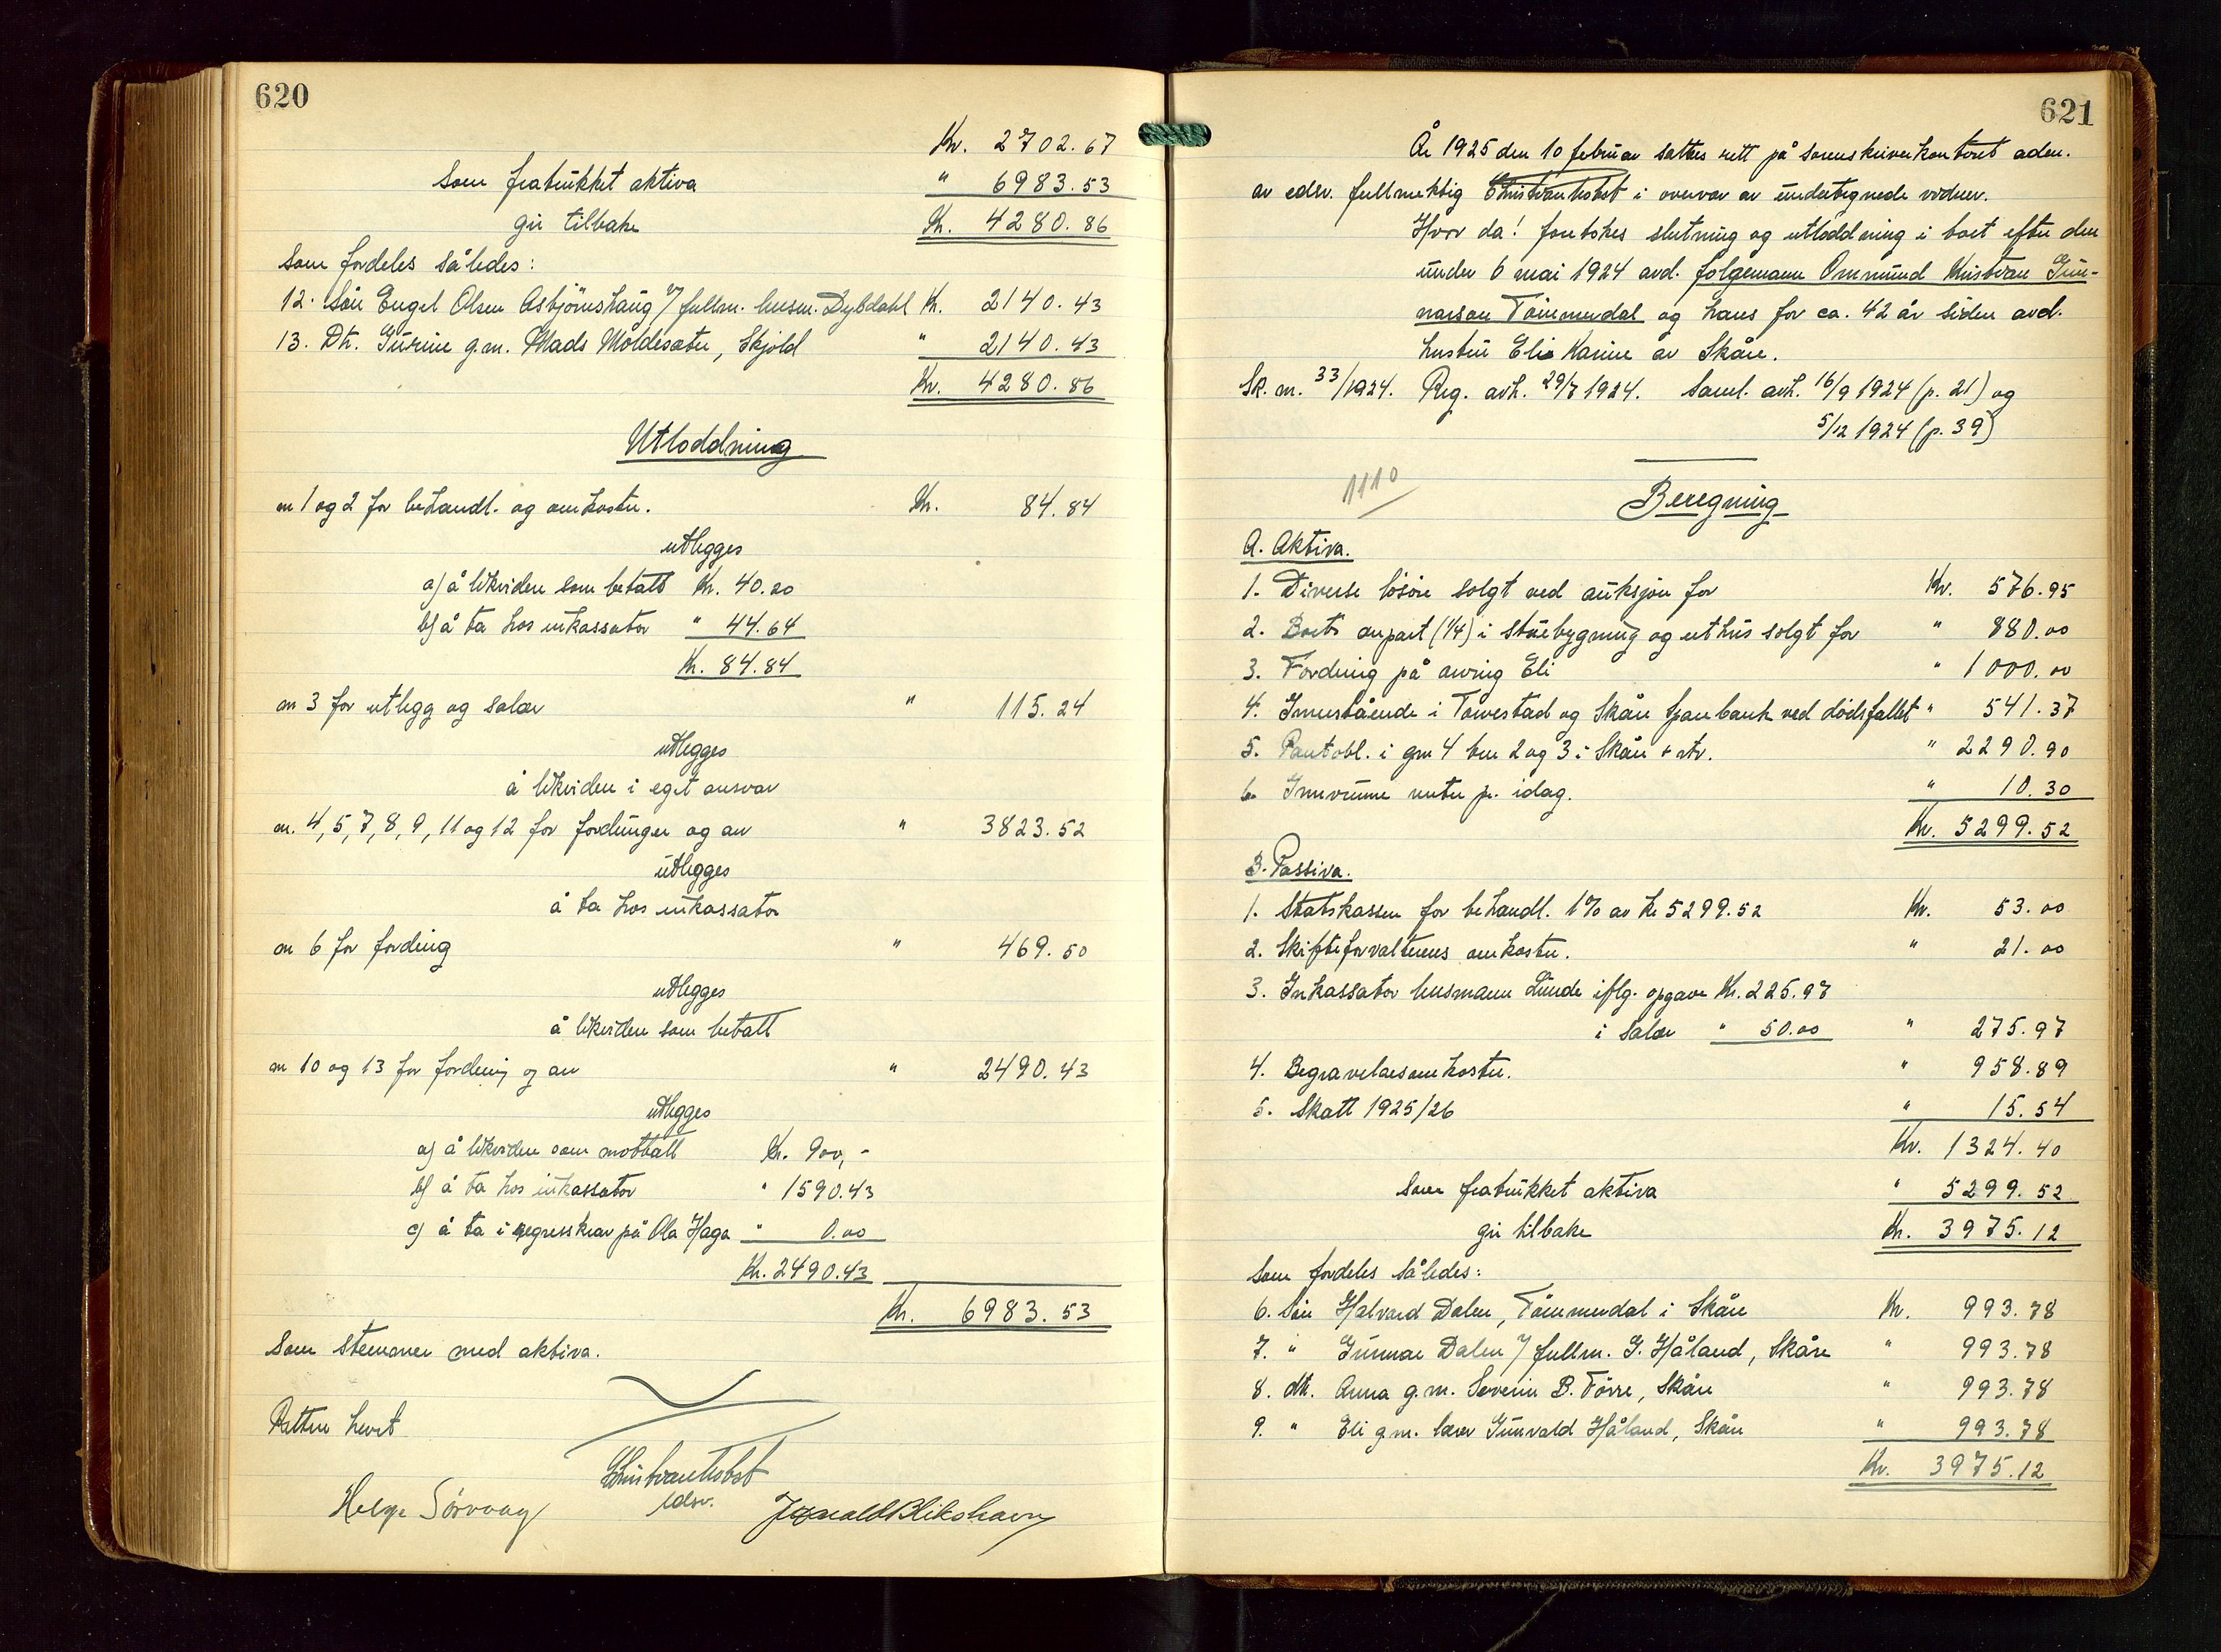 620
Kr. 2702.67
som fratrukket aktiva " 6983.53
gir tilbake Kr. 4280.86
som fordeles således:
12. Søn Engel Olsen Asbjörnshaug v/ fullm. lensm. Dybdahl Kr. 2140.43
13. Dtr. Gurine g.m. Mads Moldesæter, Skjold " 2140.43
Kr. 4280.86
Utloddning
nr 1 og 2 for behandl. og omkostn. Kr. 84.84
utlegges
a) å likviden som betalt Kr. 40.20
b) å ta hos inkassator " 44.64
Kr. 84.84
nr 3 for utlegg og salær " 115.24
utlegges
å likviden i eget ansvar
nr. 4, 5, 7, 8, 9, 11 og 12 for fordringer og arv " 3823.52
utlegges
å ta hos inkassator
nr 6 for fordring " 469.50
utlegges
å likviden som betalt
nr 10 og 13 for fordring og arv " 2490.43
utlegges
a) å likviden som mottatt Kr. 900,-
b) å ta hos inkassator " 1590.43
c) å ta i regresskrav på Ola Haga " 0.00
Kr. 2490.43
Kr. 6983.53
Som stemmer med aktiva.
Retten hevet
Edsv.
Helge Sørvaag
621
År 1925 den 10 februar sattes rett på sorenskriverkontoret adm.
av edsv. fullmektig i overvær av undertegnede vidner.
Hvor da! foretokes slutning og utloddning i boet efter den
under 6 mai 1924 avd. følgemann Ommund Kristian Gun-
narson Tömmerdal og hans for ca. 42 år siden avd.
hustru Eli Karine av Skåre.
Sk. nr. 33/1924. Reg. avh. 29/7 1924. Saml. avh. 16/9 1924 (p. 21) og
5/12 1924 (p. 39)
1110
Beregning
A. Aktiva.
1. Diverse lösöre solgt ved auksjon for Kr. 576.95
2. Boets anpart (1/4) i stuebygning og uthus solgt for " 880.00
3. Fordring på arving Eli " 1000.00
4. Innestående i Torvestad og Skåre Sparebank ved dödsfallet " 541.37
5. Pantobl. i gnr 4 bnr 2 og 3 i Skåre + rtr. " 2290.90
6. Innvunne renter pr. idag. " 10.30
Kr. 5299.52
B. Passiva.
1. Statskassen for behandl. 1% av kr 5299.52 Kr. 53.00
2. Skifteforvalterens omkostn. " 21.00
3. Inkassator lensmann Lunde iflg. opgave Kr. 225.97
i salær " 50.00 " 275.97
4. Begravelsesomkostn. " 958.89
5. Skatt 1925/26 " 15.54
Kr. 1324.40
som fratrukket aktiva " 5299.52
gir tilbake Kr. 3975.12
som fordeles således:
6. Søn Halvard Dalen, Tömmerdal i Skåre Kr. 993.78
7. " Gunnar Dalen v/ fullm. G. Håland, Skåre " 993.78
8. dtr. Anna g.m. Severin B. Förre, Skåre " 993.78
9. " Eli g.m. lærer Gunvald Håland, Skåre " 993.78
Kr. 3975.12